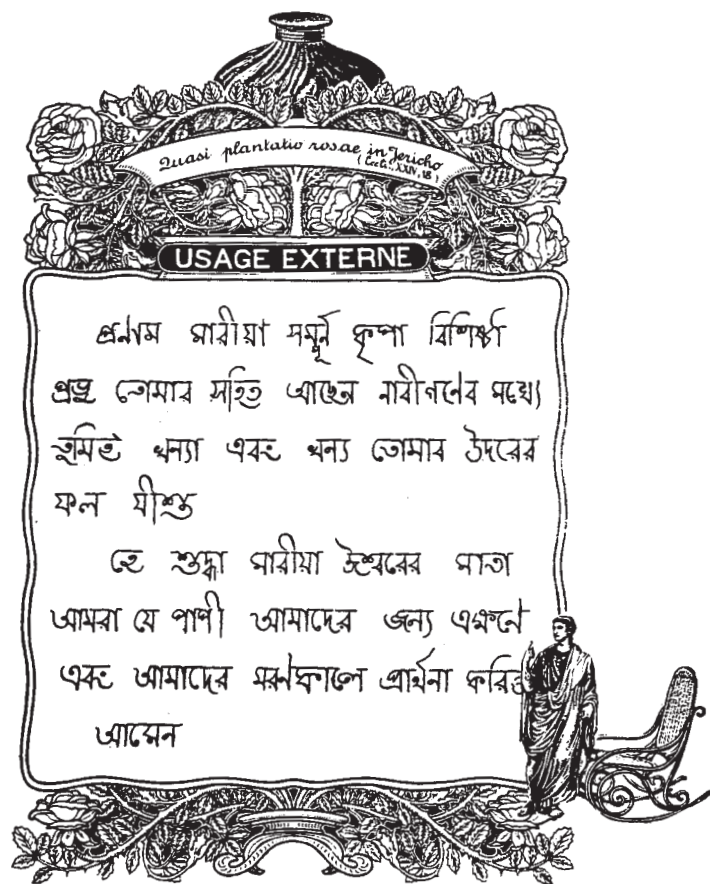 Quasi plantatio rosae in Jericho
(Eccli., XXIV, 18)
USAGE EXTERNE
প্রনাম মারীয়া সম্পূর্ন কৃপা বিশিষ্টা
প্রভু তোমার সহিত আছেন নারীগনের মধ্যে
তুমিই ধন্যা এবং ধন্য তোমার উদরের
ফল যীশু
হে শুদ্ধা মারীয়া ঈশ্বরের মাতা
আমরা যে পাপী আমাদের জন্য এক্ষনে
এবং আমাদের মরণকালে প্রার্থনা
আমেন